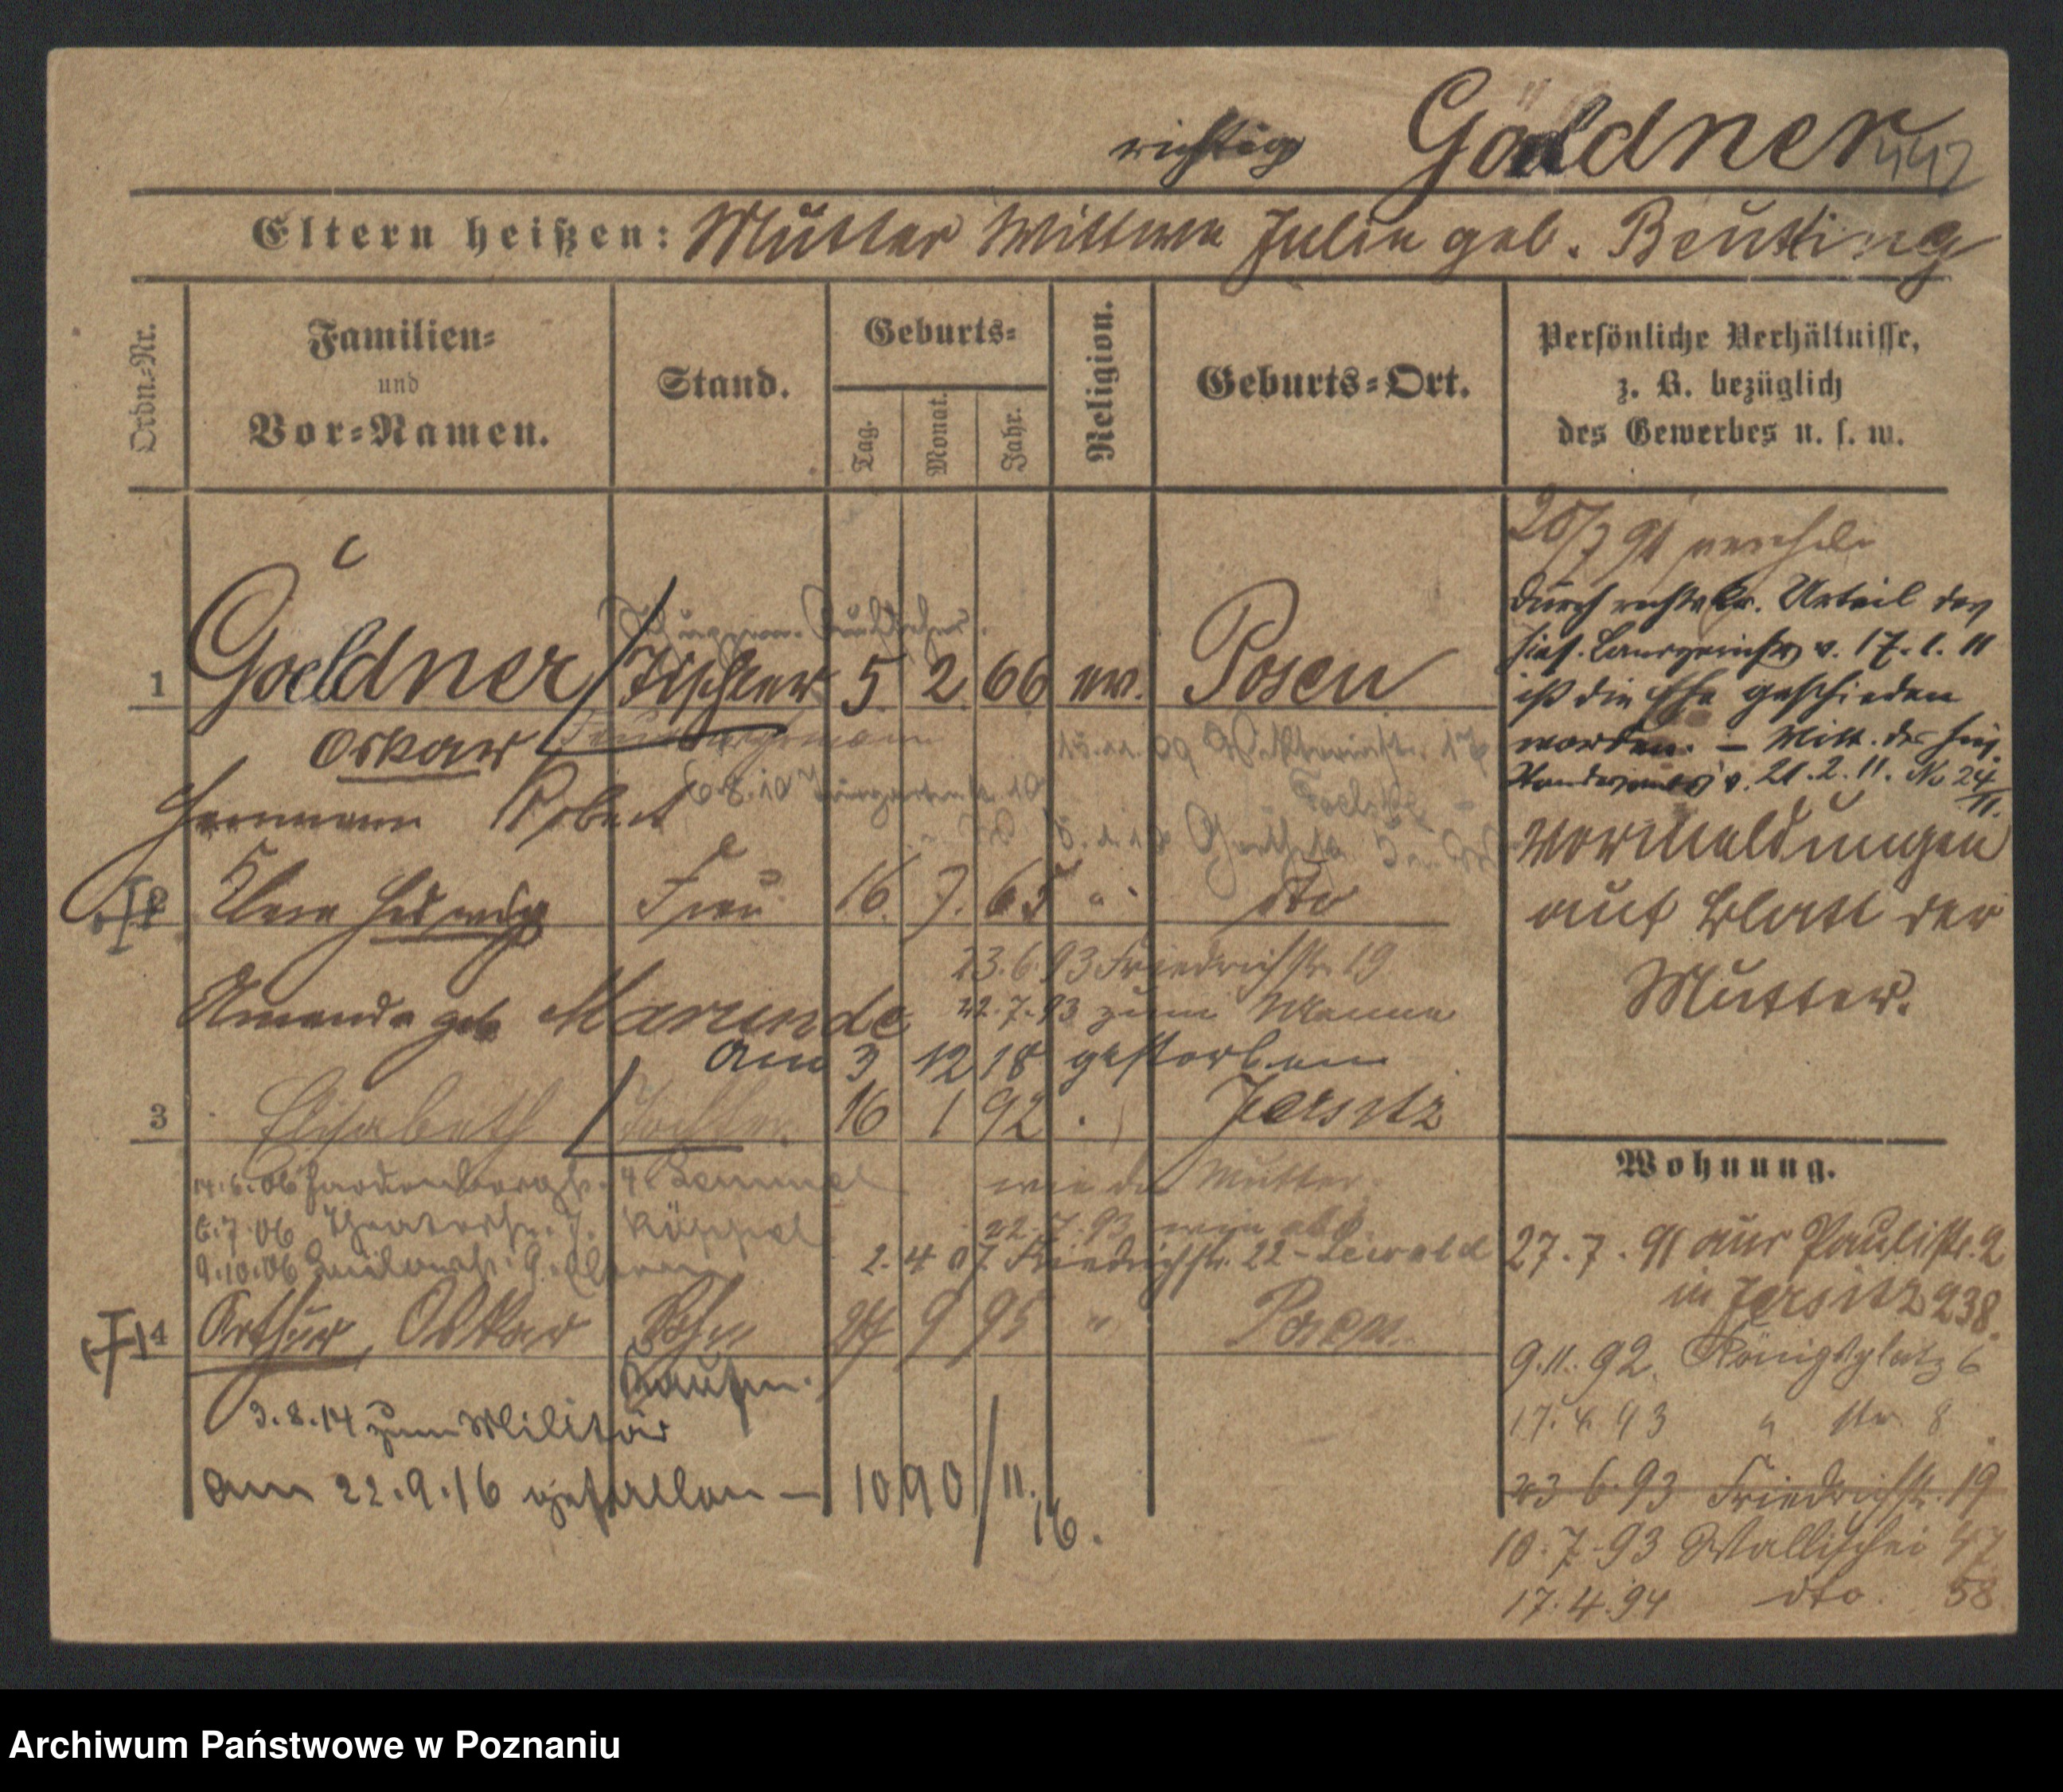 richtig Göldner
442
Eltern heißen: Mutter Wittwe Julie geb. Beutting
Ordn.-Nr.
Familien- und Vor-Namen.
Stand.
Geburts-
Tag. Monat. Jahr.
Religion.
Geburts-Ort.
Persönliche Verhältnisse,
z. B. bezüglich
des Gewerbes u. s. w.
durch rechtskr. Urteil des
hies. Landgerichts v. 17.1.11
ist die Ehe geschieden
worden. — Mitt. des hies.
Standesamts v. 21.2.11. No 24/11.
Vormeldungen
auf Blatt der
Mutter.
1 Goeldner Tischler 5 2 66 ev. Posen
Oskar
Hermann Robert 6.8.10 Tiergartenstr. 10
2 Clara Hedwig Frau 16. 7. 65 " dto
23.6.93 Friedrichstr. 19
Amanda geb Marunde 22.7.93 zum Manne
am 3 12 18 gestorben
3 Elisabeth Tochter 16 1 92 Jersitz
14.6.06 Hardenbergstr. 4 wie die Mutter.
6.7.06 Theaterstr. 7. 22.7.93 wie ob
9.10.06 2.4.07 Friedrichstr. 22 - Lewald
4 Arthur, Oskar Sohn 27 9 95 " Posen
Kaufm.
3.8.14 zum Militär
am 22.9.16 gefallen — 1090/11.16.
Wohnung.
27.7.91 aus Paulistr. 2
in Jersitz 238.
9.11.92. Königsplatz 6
17.4.93 " No 8
23 6.93 Friedrichstr. 19
10.7.93 Wallischei 47
17.4.94 dto. 58
Archiwum Państwowe w Poznaniu